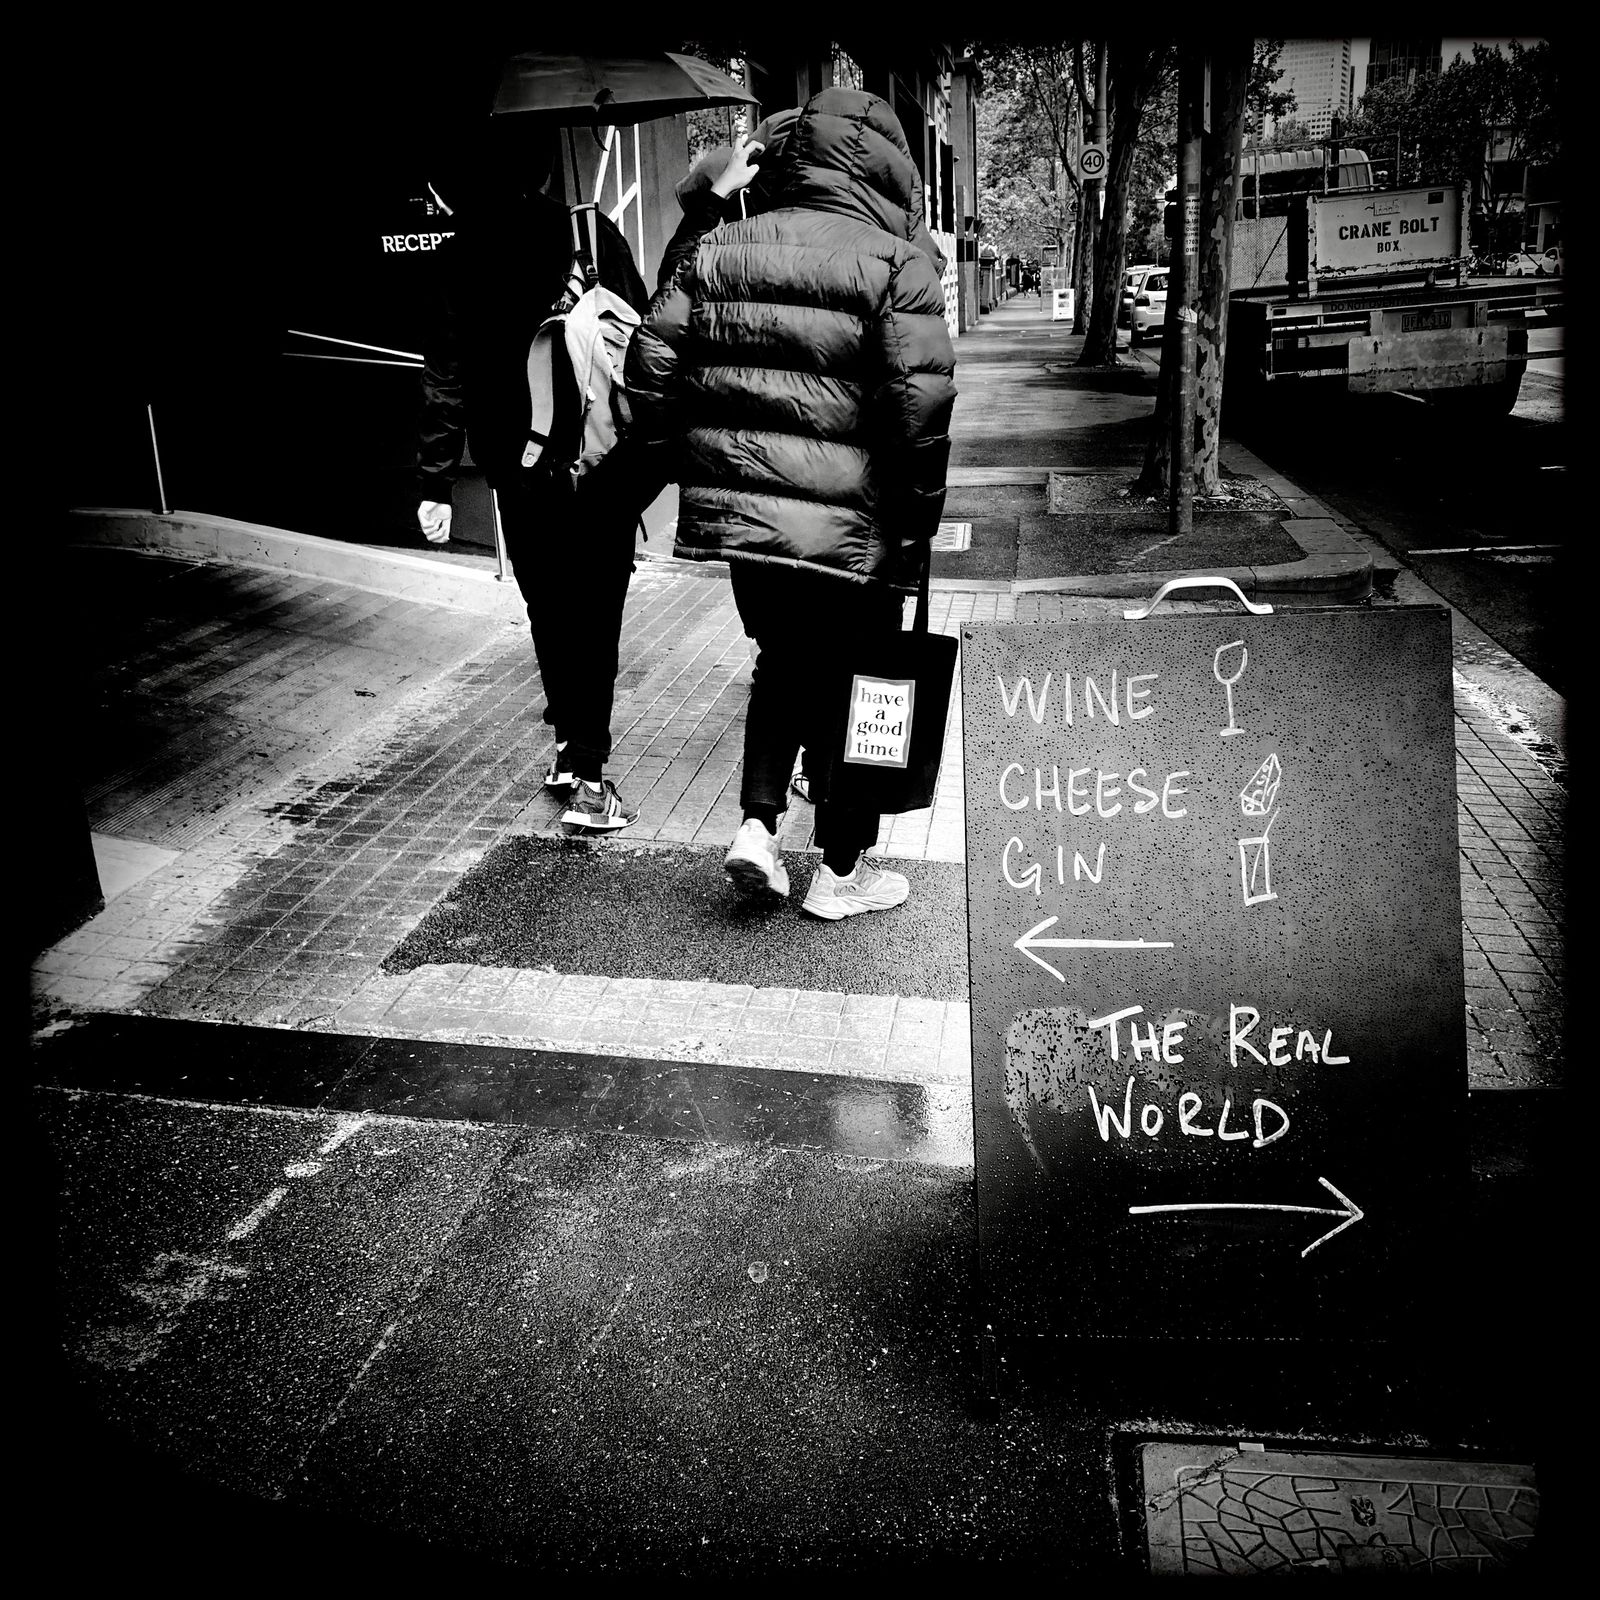 RECEPT
40
CRANE BOLT
BOX
have
a
good
time
WINE
CHEESE
GIN
THE REAL
WORLD